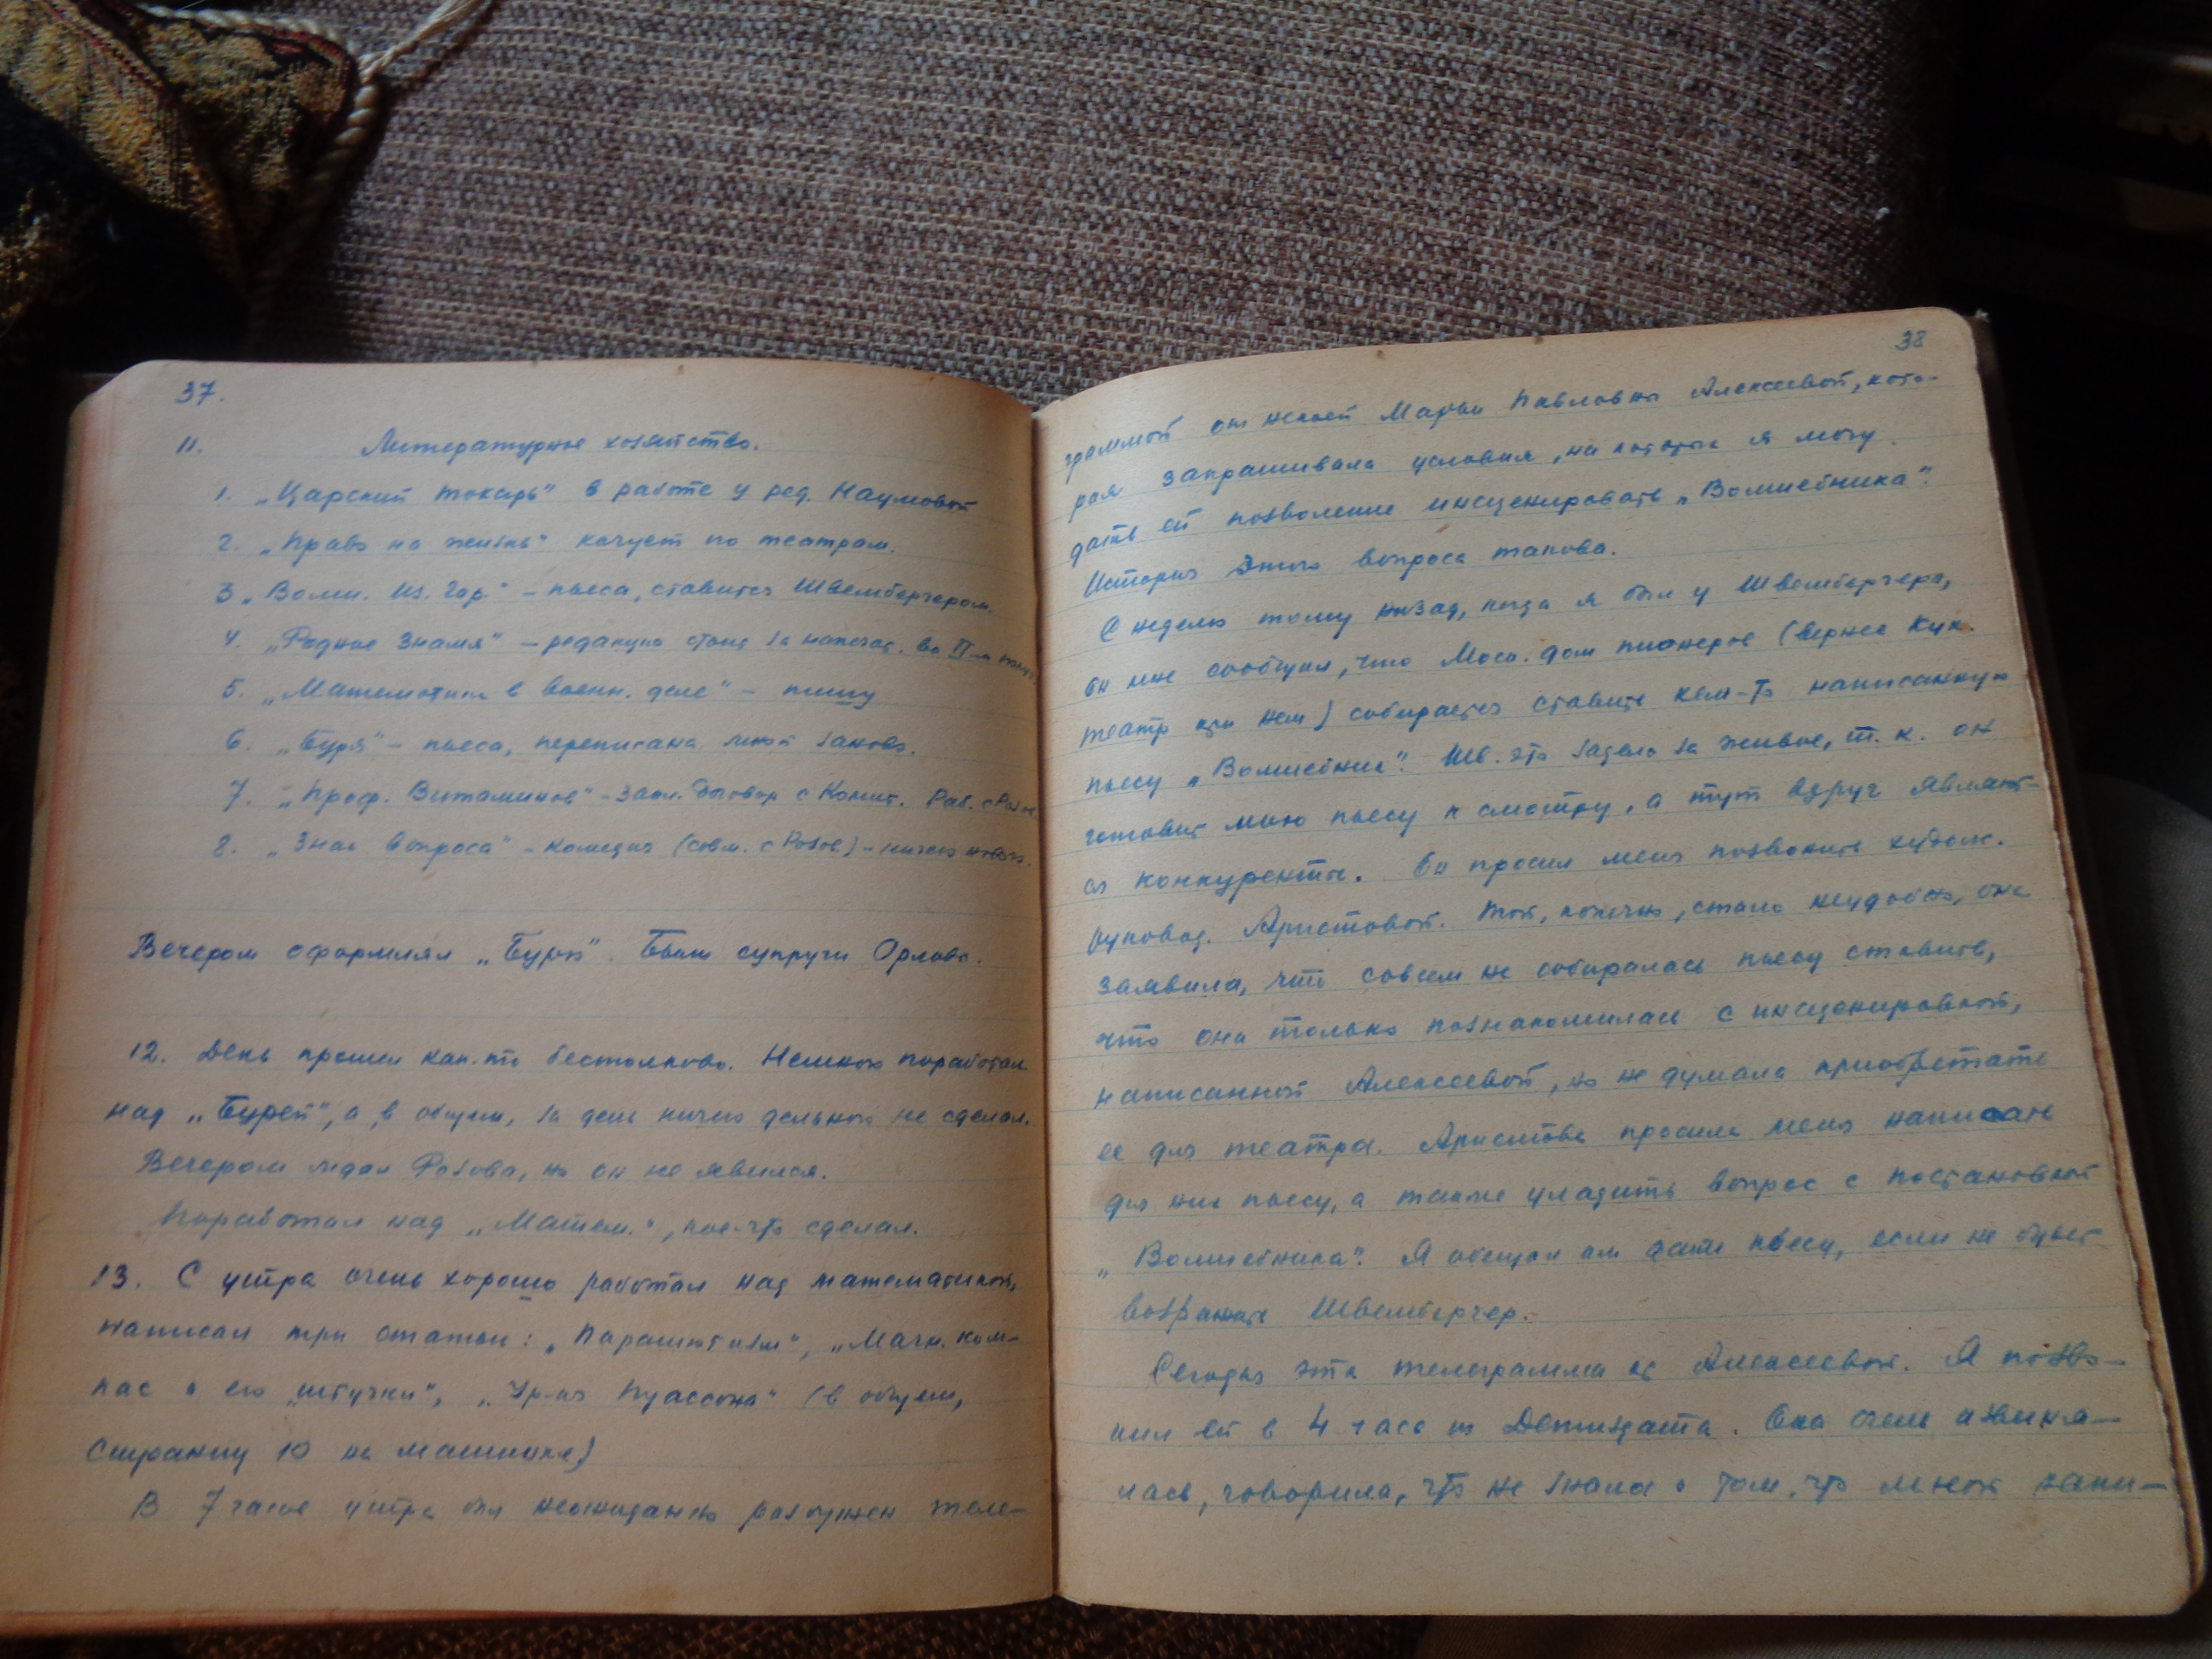 37.
11. Литературное хозяйство.
1. „Царский токарь" в работе у ред. Наумовой
2. „Право на жизнь" кочует по театрам.
3. „Волш. Из. Гор." – пьеса, ставится Швембергером.
4. „Родное Знамя" – редакция стоит за напечат. во II-м
5. „Математика в военн. деле" – пишу
6. „Буря" – пьеса, переписана мной заново.
7. „Проф. Витаминов" – Закл. Договор с Комит. Раб. с Розов.
8. „Знак Вопроса" – комедия (совм. с Розов.) – ничего нового.
Вечером оформлял „Бурю". Были супруги Орловы.
12. День прошел как-то бестолково. Немного поработал
над „Бурей", а, в общем, за день ничего дельного не сделал.
Вечером ждал Розова, но он не явился.
Поработал над „Матем.", кое-что сделал.
13. С утра очень хорошо работал над математикой,
написал три статьи: „Парашютизм", „Магн. ком-
пас и его „штучки", „Ур-ия Пуассона" (в общем,
страниц 10 на машинке)
В 7 часов утра был неожиданно разбужен теле-
38
граммой от некоей Марьи Павловны Алексеевой, кото-
рая запрашивала условия, на которых я могу
дать ей позволение инсценировать „Волшебника".
История этого вопроса такова.
С неделю тому назад, когда я был у Швембергера,
он мне сообщил, что Моск. дом пионеров (вернее Кук.
театр при нем) собирается ставить кем-то написанную
пьесу „Волшебник". Шв. это задело за живое, т. к. он
готовит мою пьесу к смотру, а тут вдруг являют-
ся конкуренты. Он просил меня позвонить худож.
руковод. Аристовой. Той, конечно, стало неудобно, она
заявила, что совсем не собиралась пьесу ставить,
что она только познакомилась с инсценировкой,
написанной Алексеевой, но не думала приобретать
ее для театра. Аристова просила меня написать
для них пьесу, а также уладить вопрос с постановкой
„Волшебника". Я обещал им дать пьесу, если не будет
возражать Швембергер.
Сегодня эта телеграмма от Алексеевой. Я позво-
нил ей в 4 часа из Детиздата. Она очень извиня-
лась, говорила, что не знала о том, что мной напи-